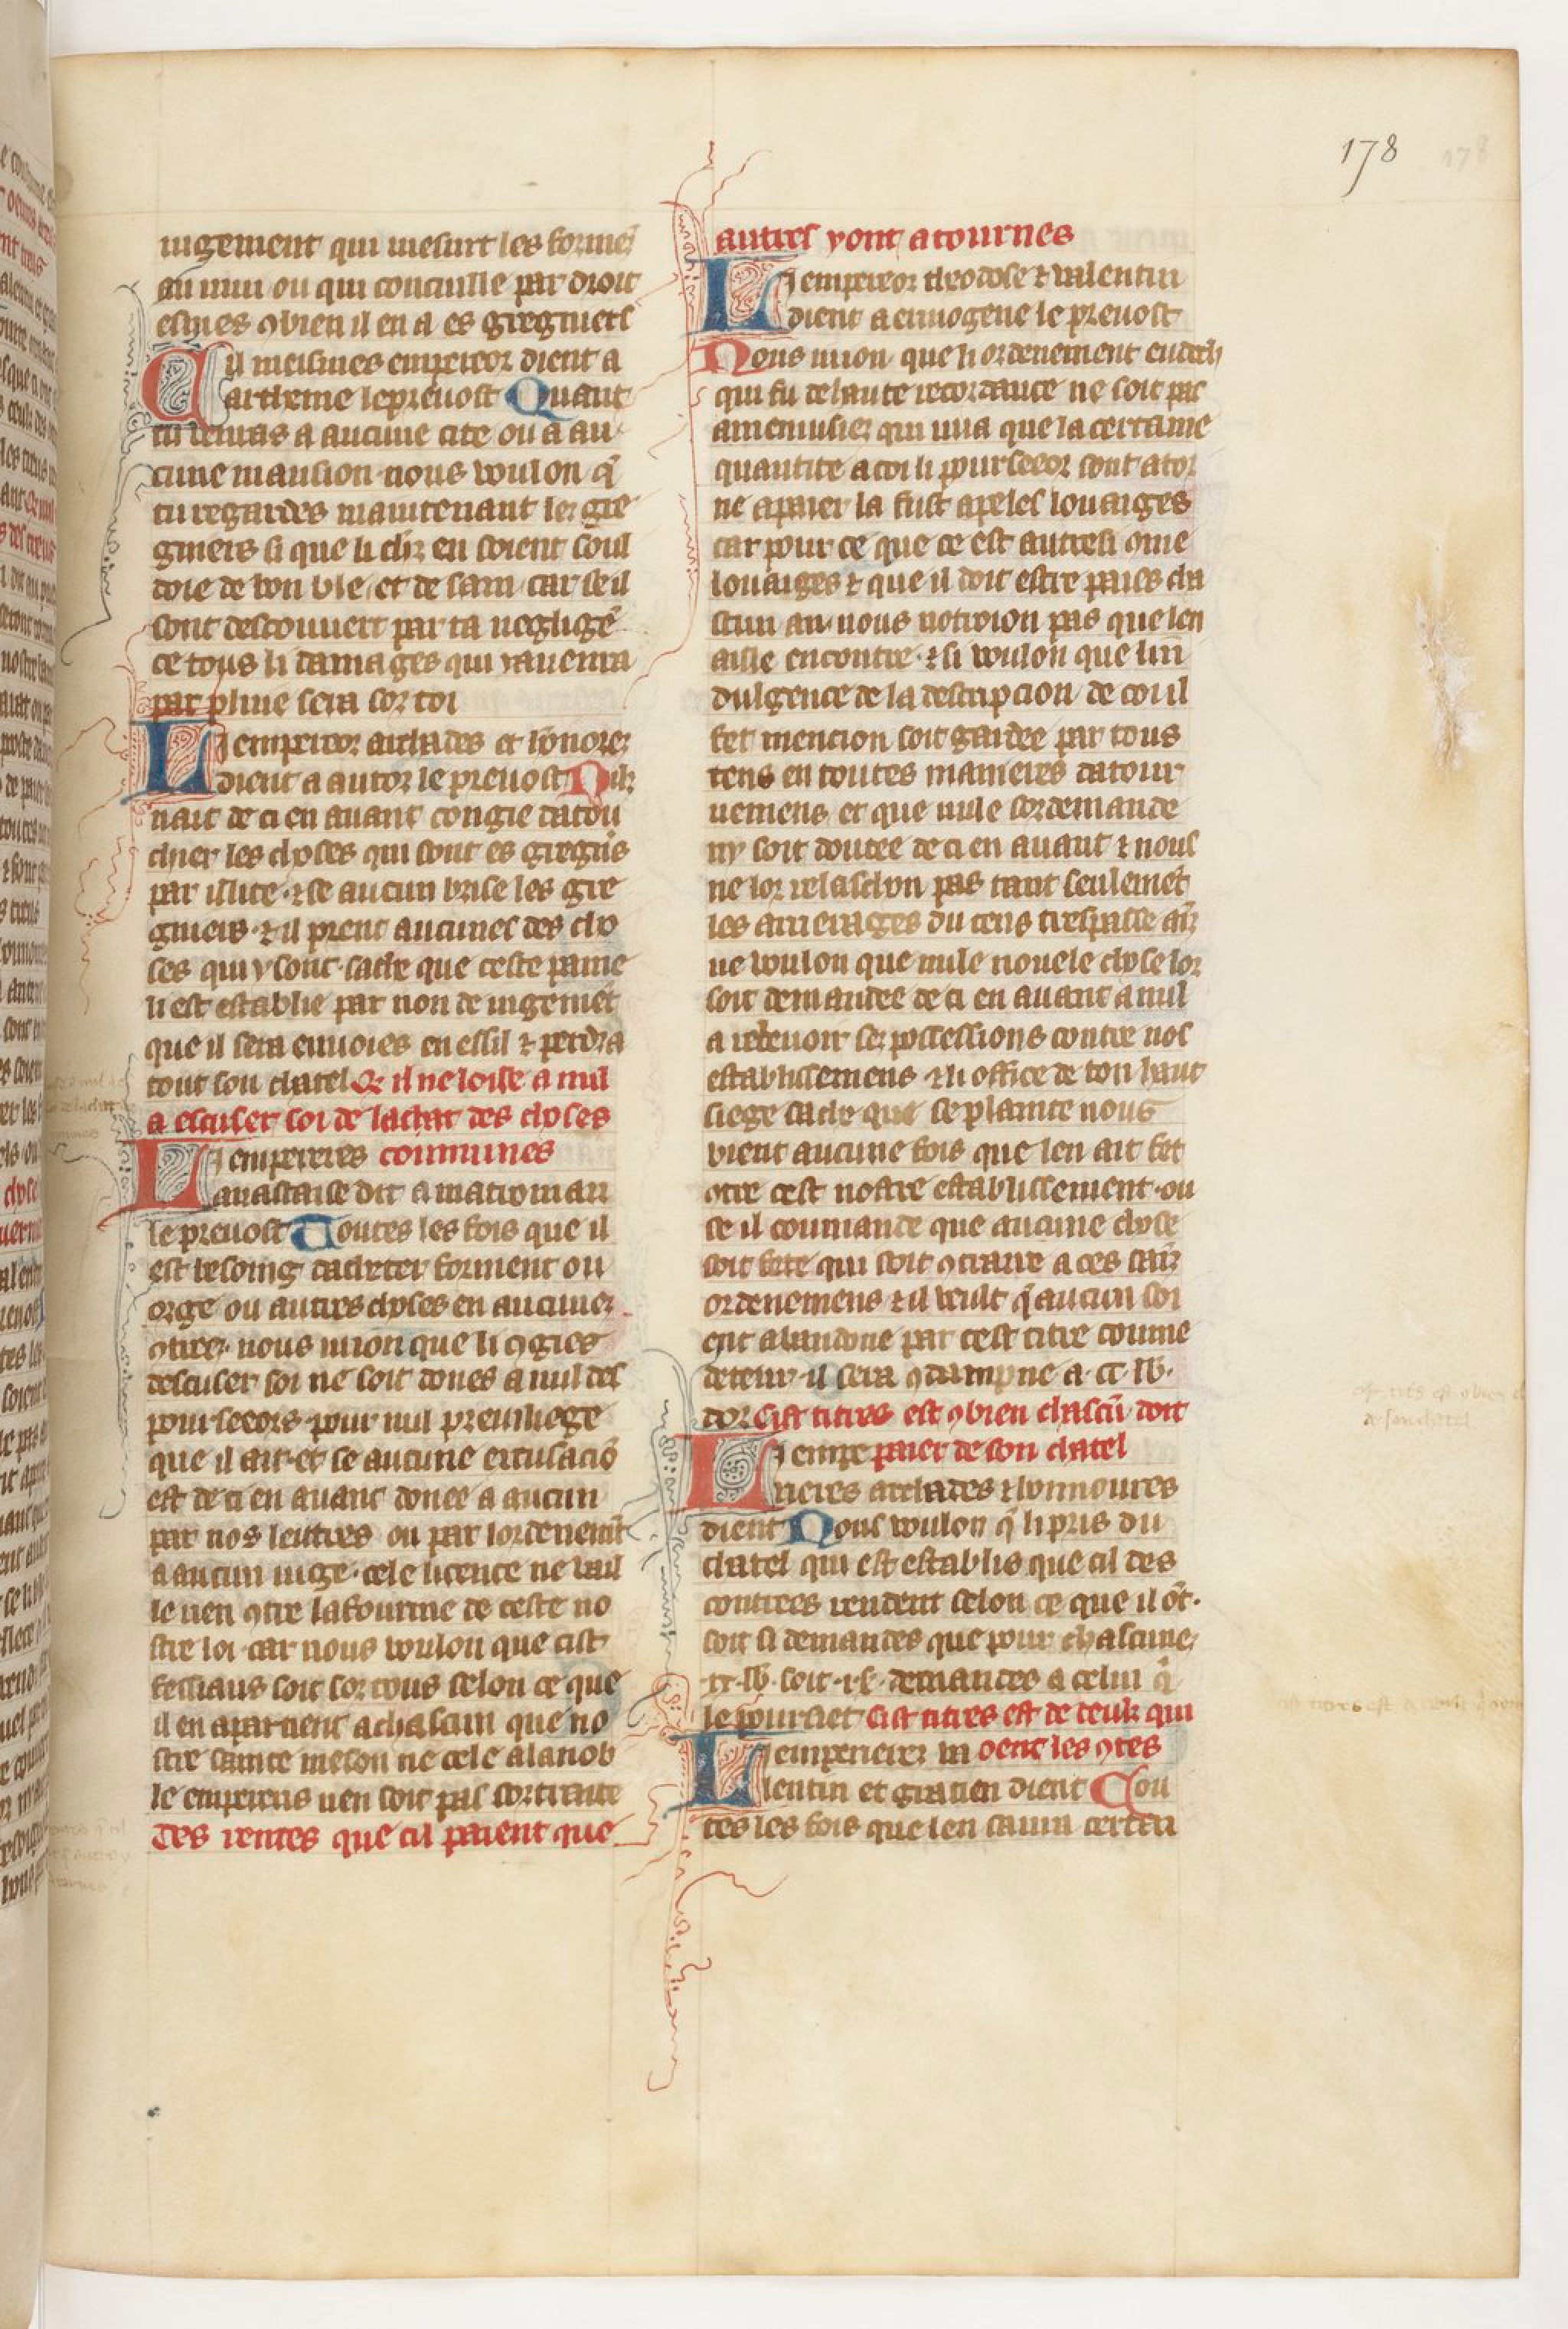 178
iugement qui mesurt les forme
au mui ou qui conciulle par droit
esmes 9bien il en a es gregniers
Cil meismes empereor dient a
artheme le preuost Quant
tu venras a aucune cite ou a au
cune mansion nous voulon q̃
tu regardes maintenant les gre
gniers si que li cheual en soient soul
doie de bon ble et de sain car se il
sont descouuert par ta negligẽ
ce tous li damages qui i auenra
par pluie sera sor toi
Li empereor archades et honores
dient a autor le preuost Nus
nait de ci en auant congie datou
chier les choses qui sont es gregñs
par illuec ⁊ se aucun brise les gre
gniers ⁊ il prent aucunes des cho
ses qui y sont sache que ceste paine
li est establie par non de iugemẽt
que il sera enuoies en essil ⁊ perdra
tout son chatel Qe il ne loise a nul
a escuser soi de lachat des choses
Li empereres communes
anastaise dit a matronian
le preuost Toutes les fois que il
est besoing dacheter forment ou
orge ou autres choses en aucunes
9trees nous uuion que li 9gies
descuser soi ne soit dones a nul des
pourseeors pour nul preuiliege
que il ait et se aucune escusaciõ
est de ci en auant donee a aucun
par nos lettres ou par lordenemẽt
a aucun iuge cele licence ne vail
le rien 9tre la fourme de ceste no
stre loi car nous voulon que cist
fessiaus soit sor tous selon ce que
il en apartient a chascun que no
stre sainte meson ne cele a la nob
le empereris nen soit pas sortraite
Des rentes que cil paient que
autres uont atournes
Li empereor theodose ⁊ valentin
dient a ennogene le preuost
Nous uuion que li ordenement eudoch
qui fu de haute recordance ne soit pas
amenusies qui uua que la certaine
quantite a coi li pourseeor sont ator
ne a paier la fust apeles louaiges
car pour ce que ce est autresi 9me
louaiges ⁊ que il doit estre paies cha
scun an nous notroion pas que len
aille encontre ⁊ si voulon que lin
dulgence de la descripcion de coi il
fet mencion soit gardee par tous
tens en toutes manieres datour
nemens et que nule sordemande
ny soit doutee de ci en auant ⁊ nous
ne lor relaschon pas tant seulemẽt
les arrerages du tens trespasse ain
ne voulon que nule nouele chose lor
soit demandee de ci en auant a nul
a retenoir ses possessions contre nos
establissemens ⁊ li office de ton haut
siege sache que se plainte nous
vient aucune fois que len ait fet
9tre cest nostre establissement ou
se il commande que aucune chose
soit fete qui soit 9traire a ces sains
ordenemens ⁊ il veult q̃ aucun soi
ent abandone par cest titre comme
deteur il sera 9dampne a .cc. lb.
dor Cist titres est 9bien chascũ doit
Li empe paier de son chatel
rieres archades ⁊ honnoures
dient Nous voulon q̃ li pris du
chatel qui est establis que cil des
contrees rendent selon ce que il õt.
soit si demandes que pour chascune
.xx. lb. soit .i. s. demandes a celui q̃
le poursiet Cist titres est de ceuls qui
Li empereres va doent les 9tes
lentin et gratien dient Tou
tes les fois que len saura certai